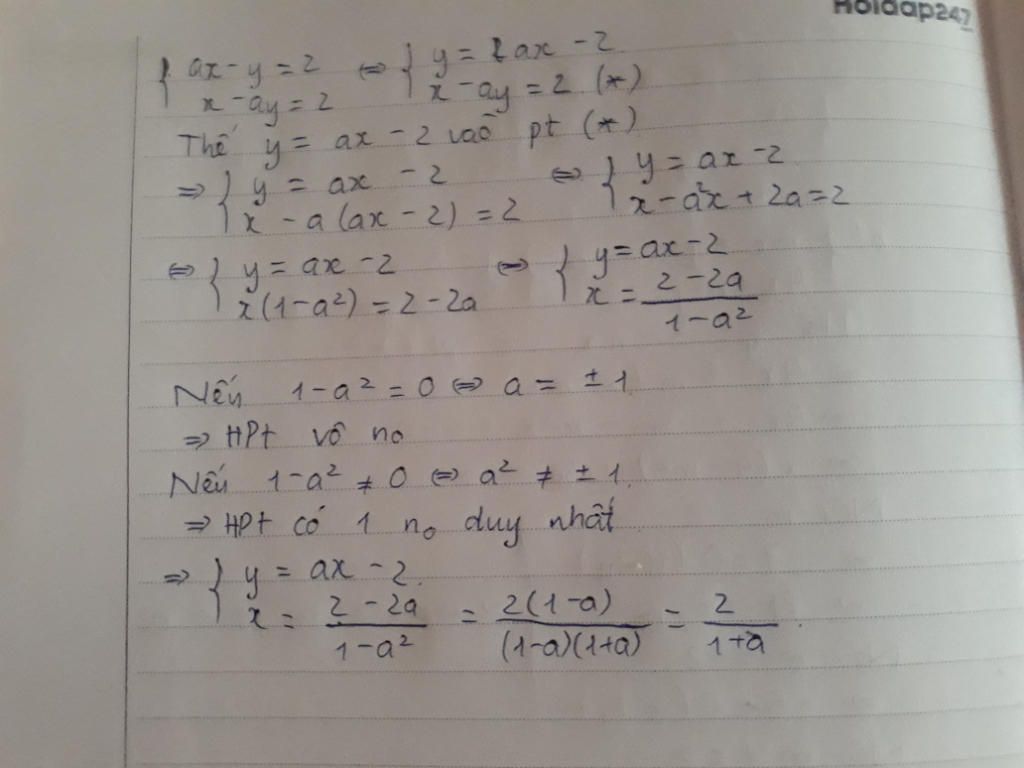 Hoidap247
{ ax - y = 2 ⇔ { y = ax - 2
x - ay = 2 x - ay = 2 (*)
Thế y = ax - 2 vào pt (*)
⇒ { y = ax - 2 ⇔ { y = ax - 2
x - a(ax - 2) = 2 x - a²x + 2a = 2
⇔ { y = ax - 2 ⇔ { y = ax - 2
x(1 - a²) = 2 - 2a x = (2 - 2a)/(1 - a²)
Nếu 1 - a² = 0 ⇔ a = ± 1
⇒ HPt vô no
Nếu 1 - a² ≠ 0 ⇔ a² ≠ ± 1.
⇒ HPt có 1 no duy nhất
⇒ { y = ax - 2.
x = (2 - 2a)/(1 - a²) = 2(1 - a)/((1-a)(1+a)) = 2/(1+a).